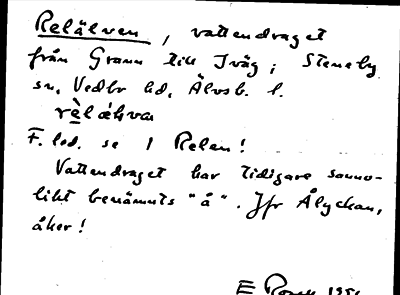 Relälven, vattendraget
från Grann till Iväg; Steneby
sn, Vedbo hd, Älvsb. l.
rèlæ̀lva
F. led. se 1 Relen!
Vattendraget har tidigare sanno-
likt benämnts "å". Jfr Ålyckan,
åker!
E